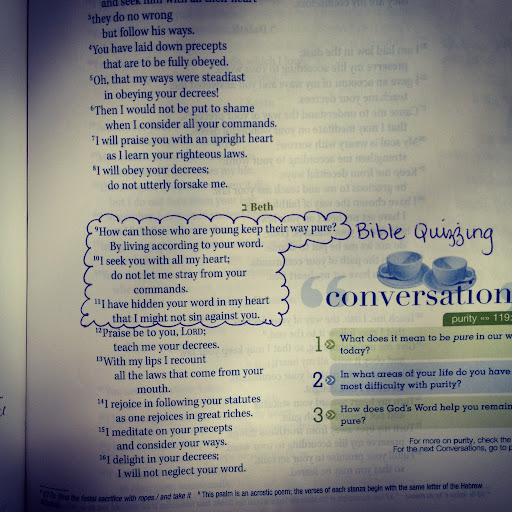 and seek him with all their heart
³they do no wrong
but follow his ways.
⁴You have laid down precepts
that are to be fully obeyed.
⁵Oh, that my ways were steadfast
in obeying your decrees!
⁶Then I would not be put to shame
when I consider all your commands.
⁷I will praise you with an upright heart
as I learn your righteous laws.
⁸I will obey your decrees;
do not utterly forsake me.
ב Beth
⁹How can those who are young keep their way pure?
By living according to your word.
¹⁰I seek you with all my heart;
do not let me stray from your
commands.
¹¹I have hidden your word in my heart
that I might not sin against you.
¹²Praise be to you, LORD;
teach me your decrees.
¹³With my lips I recount
all the laws that come from your
mouth.
¹⁴I rejoice in following your statutes
as one rejoices in great riches.
¹⁵I meditate on your precepts
and consider your ways.
¹⁶I delight in your decrees;
I will not neglect your word.
Bible Quizzing
“conversation
purity «» 119:
1 What does it mean to be pure in our w
today?
2 In what areas of your life do you have
most difficulty with purity?
3 How does God's Word help you remain
pure?
For more on purity, check the
For the next Conversations, go to p
the festal sacrifice with ropes / and take it ᵃ This psalm is an acrostic poem; the verses of each stanza begin with the same letter of the Hebrew